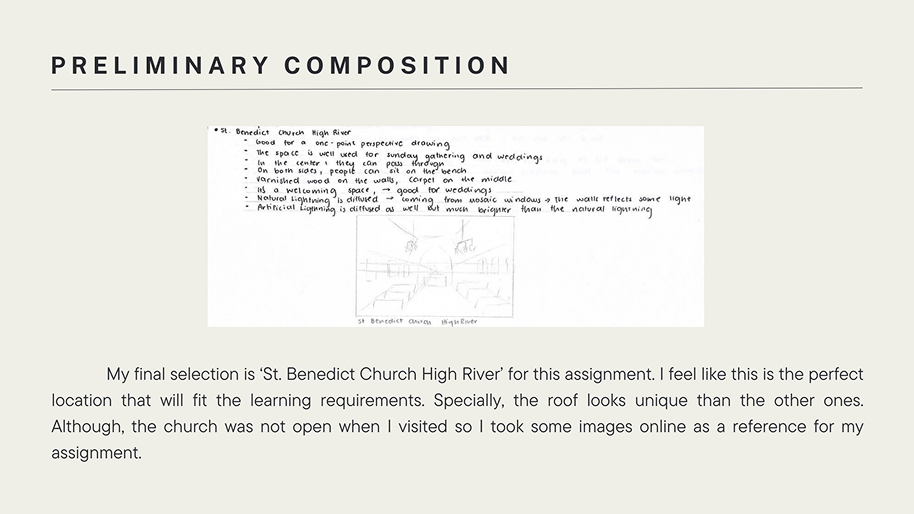 PRELIMINARY COMPOSITION
• St. Benedict Church High River
- Good for a one-point perspective drawing
- The space is well used for sunday gathering and weddings
- In the center, they can pass through
- On both sides, people can sit on the bench
- Varnished wood on the walls, carpet on the middle
- It's a welcoming space, → good for weddings
- Natural Lightning is diffused → coming from mosaic windows → the walls reflects some light
- Artificial Lightning is diffused as well but much brighter than the natural lightning
St Benedict Church High River
My final selection is ‘St. Benedict Church High River’ for this assignment. I feel like this is the perfect
location that will fit the learning requirements. Specially, the roof looks unique than the other ones.
Although, the church was not open when I visited so I took some images online as a reference for my
assignment.